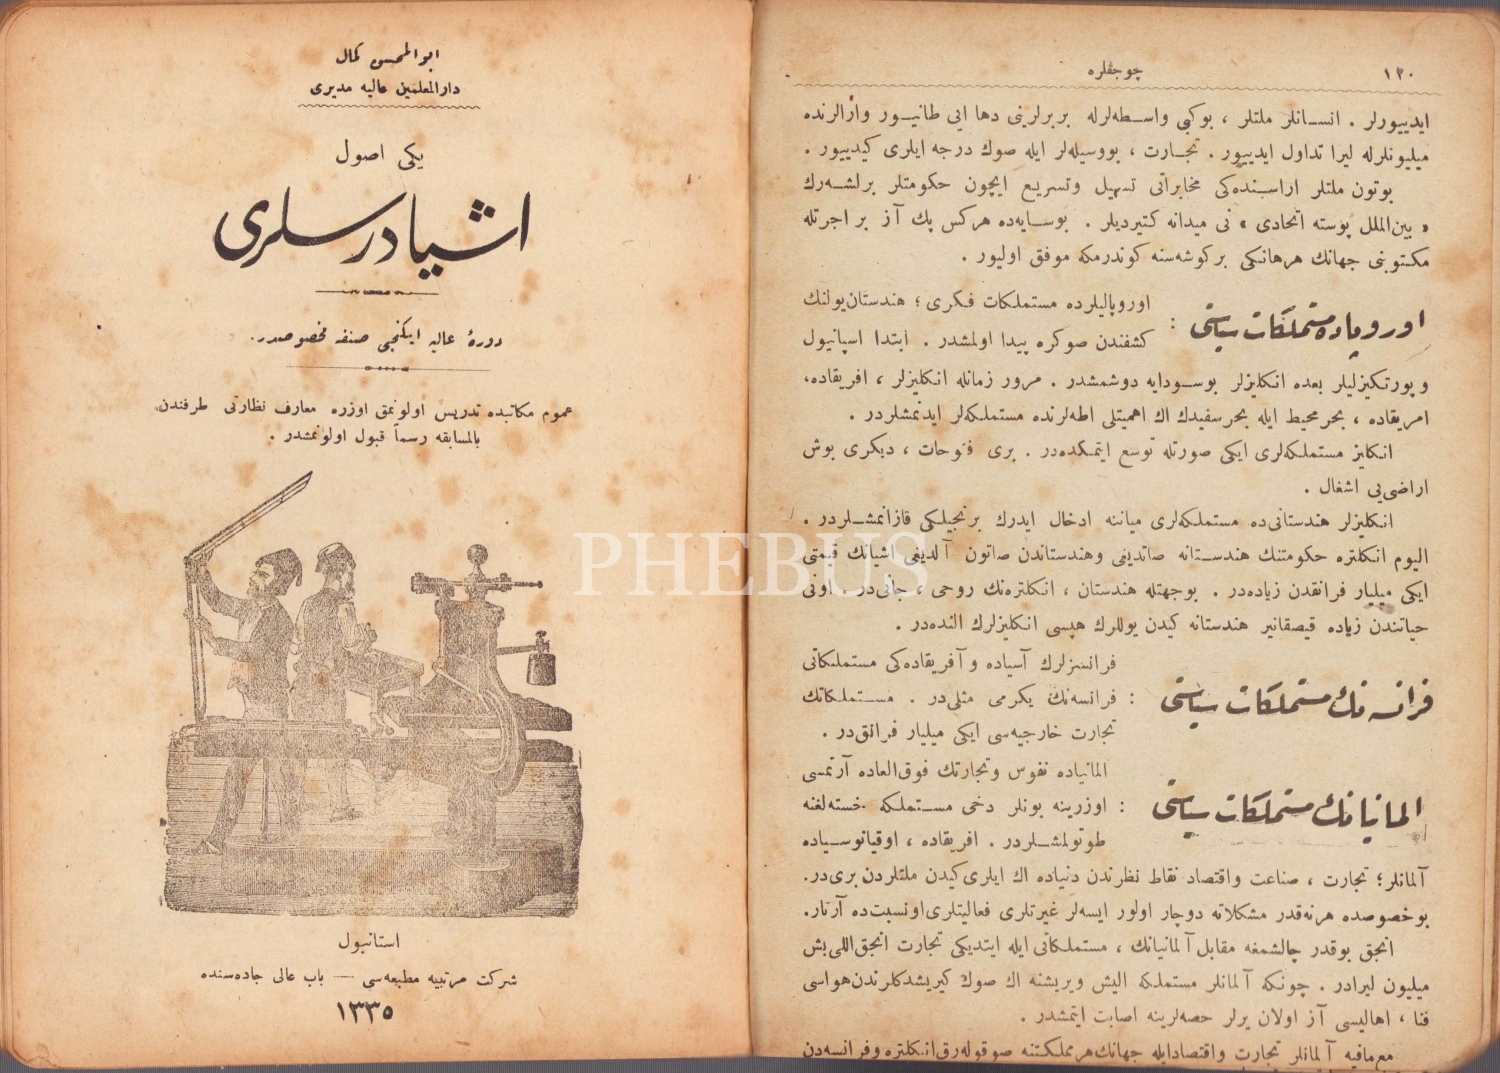 ابوالمحسن كمال
دارالمعلمين عاليه مديرى
يكى اصول
اشيا درسلرى
دورۀ عاليه ايكنجى صنفه مخصوصدر.
عموم مكاتبده تدريس اولونمق اوزره معارف نظارتى طرفندن
بالمسابقه رسماً قبول اولونمشدر .
استانبول
شركت مرتبيه مطبعه‌سى — باب عالى جاده‌سنده
١٣٣٥
١٢٠
چوجقلره
ايدييورلر . انسانلر ملتلر ، بوكبى واسطه‌لرله بربرلرينى دها ايى طانيور وآرالرنده
ميليونلرله ليرا تداول ايدييور . تجارت ، بووسيله‌لر ايله صوك درجه ايلرى كيدييور .
بوتون ملتلر اراسنده‌كى مخابراتى تسهيل وتسريع ايچون حكومتلر برلشه‌رك
« بين‌الملل پوسته اتحادى » نى ميدانه كتيرديلر . بوسايه‌ده هركس پك آز بر اجرتله
مكتوبنى جهانك هرهانكى بركوشه‌سنه كوندرمكه موفق اوليور .
اوروپاده مستملكات سياستى :
اوروپاليلرده مستملكات فكرى ؛ هندستان‌يولنك
كشفندن صوكره پيدا اولمشدر . ابتدا اسپانيول
وپورتكيزليلر بعده انكليزلر بوسودايه دوشمشدر . مرور زمانله انكليزلر ، افريقاده،
امريقاده ، بحرمحيط ايله بحرسفيدك اك اهميتلى اطه‌لرنده مستملكه‌لر ايدنمشلردر .
انكليز مستملكه‌لرى ايكى صورتله توسع ايتمكده‌در . برى فتوحات ، ديكرى بوش
اراضى‌يى اشغال .
انكليزلر هندستانى‌ده مستملكه‌لرى ميانه ادخال ايدرك برنجيلكى قازانمشلردر .
اليوم انكلتره حكومتنك هندستانه صاتديغى وهندستاندن صاتون آلديغى اشيانك قيمتى
ايكى ميليار فرانقدن زياده‌در . بوجهتله هندستان ، انكلتره‌نك روحى ، جانى‌در . اونى
حياتندن زياده قيصقانير هندستانه كيدن يوللرك هپسى انكليزلرك النده‌در .
فرانسه نك مستملكات سياستى :
فرانسزلرك آسياده و آفريقاده‌كى مستملكاتى
فرانسه‌نك يكرمى مثلى‌در . مستملكاتك
تجارت خارجيه‌سى ايكى ميليار فرانق‌در .
المانيانك مستملكات سياستى :
المانياده نفوس وتجارتك فوق‌العاده آرتمسى
اوزرينه بونلر دخى مستملكه خسته‌لغنه
طوتولمشلردر . افريقاده ، اوقيانوسياده
آلمانلر؛ تجارت ، صناعت واقتصاد نقاط نظرندن دنياده اك ايلرى كيدن ملتلردن برى‌در.
بوخصوصده هرنه‌قدر مشكلاته دوچار اولور ايسه‌لر غيرتلرى فعاليتلرى اونسبت‌ده آرتار.
انجق بوقدر چالشمغه مقابل آلمانيانك ، مستملكاتى ايله ايتديكى تجارت انجق‌اللى‌بش
ميليون ليرادر . چونكه آلمانلر مستملكه اليش ويريشنه اك صوك كيريشدكلرندن‌هواسى
فنا ، اهاليسى آز اولان يرلر حصه‌لرينه اصابت ايتمشدر .
مع‌مافيه آلمانلر تجارت واقتصادايله جهانك‌هرمملكتنه صوقوله‌رق‌انكلتره وفرانسه‌دن
PHEBUS